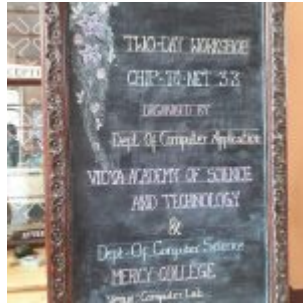 TWO-DAY WORKSHOP
CHIP-TO-NET 3.3
ORGANISED BY
Dept. Of Computer Application
VIDYA ACADEMY OF SCIENCE
AND TECHNOLOGY
&
Dept. Of Computer Science
MERCY COLLEGE
Venue: Computer Lab